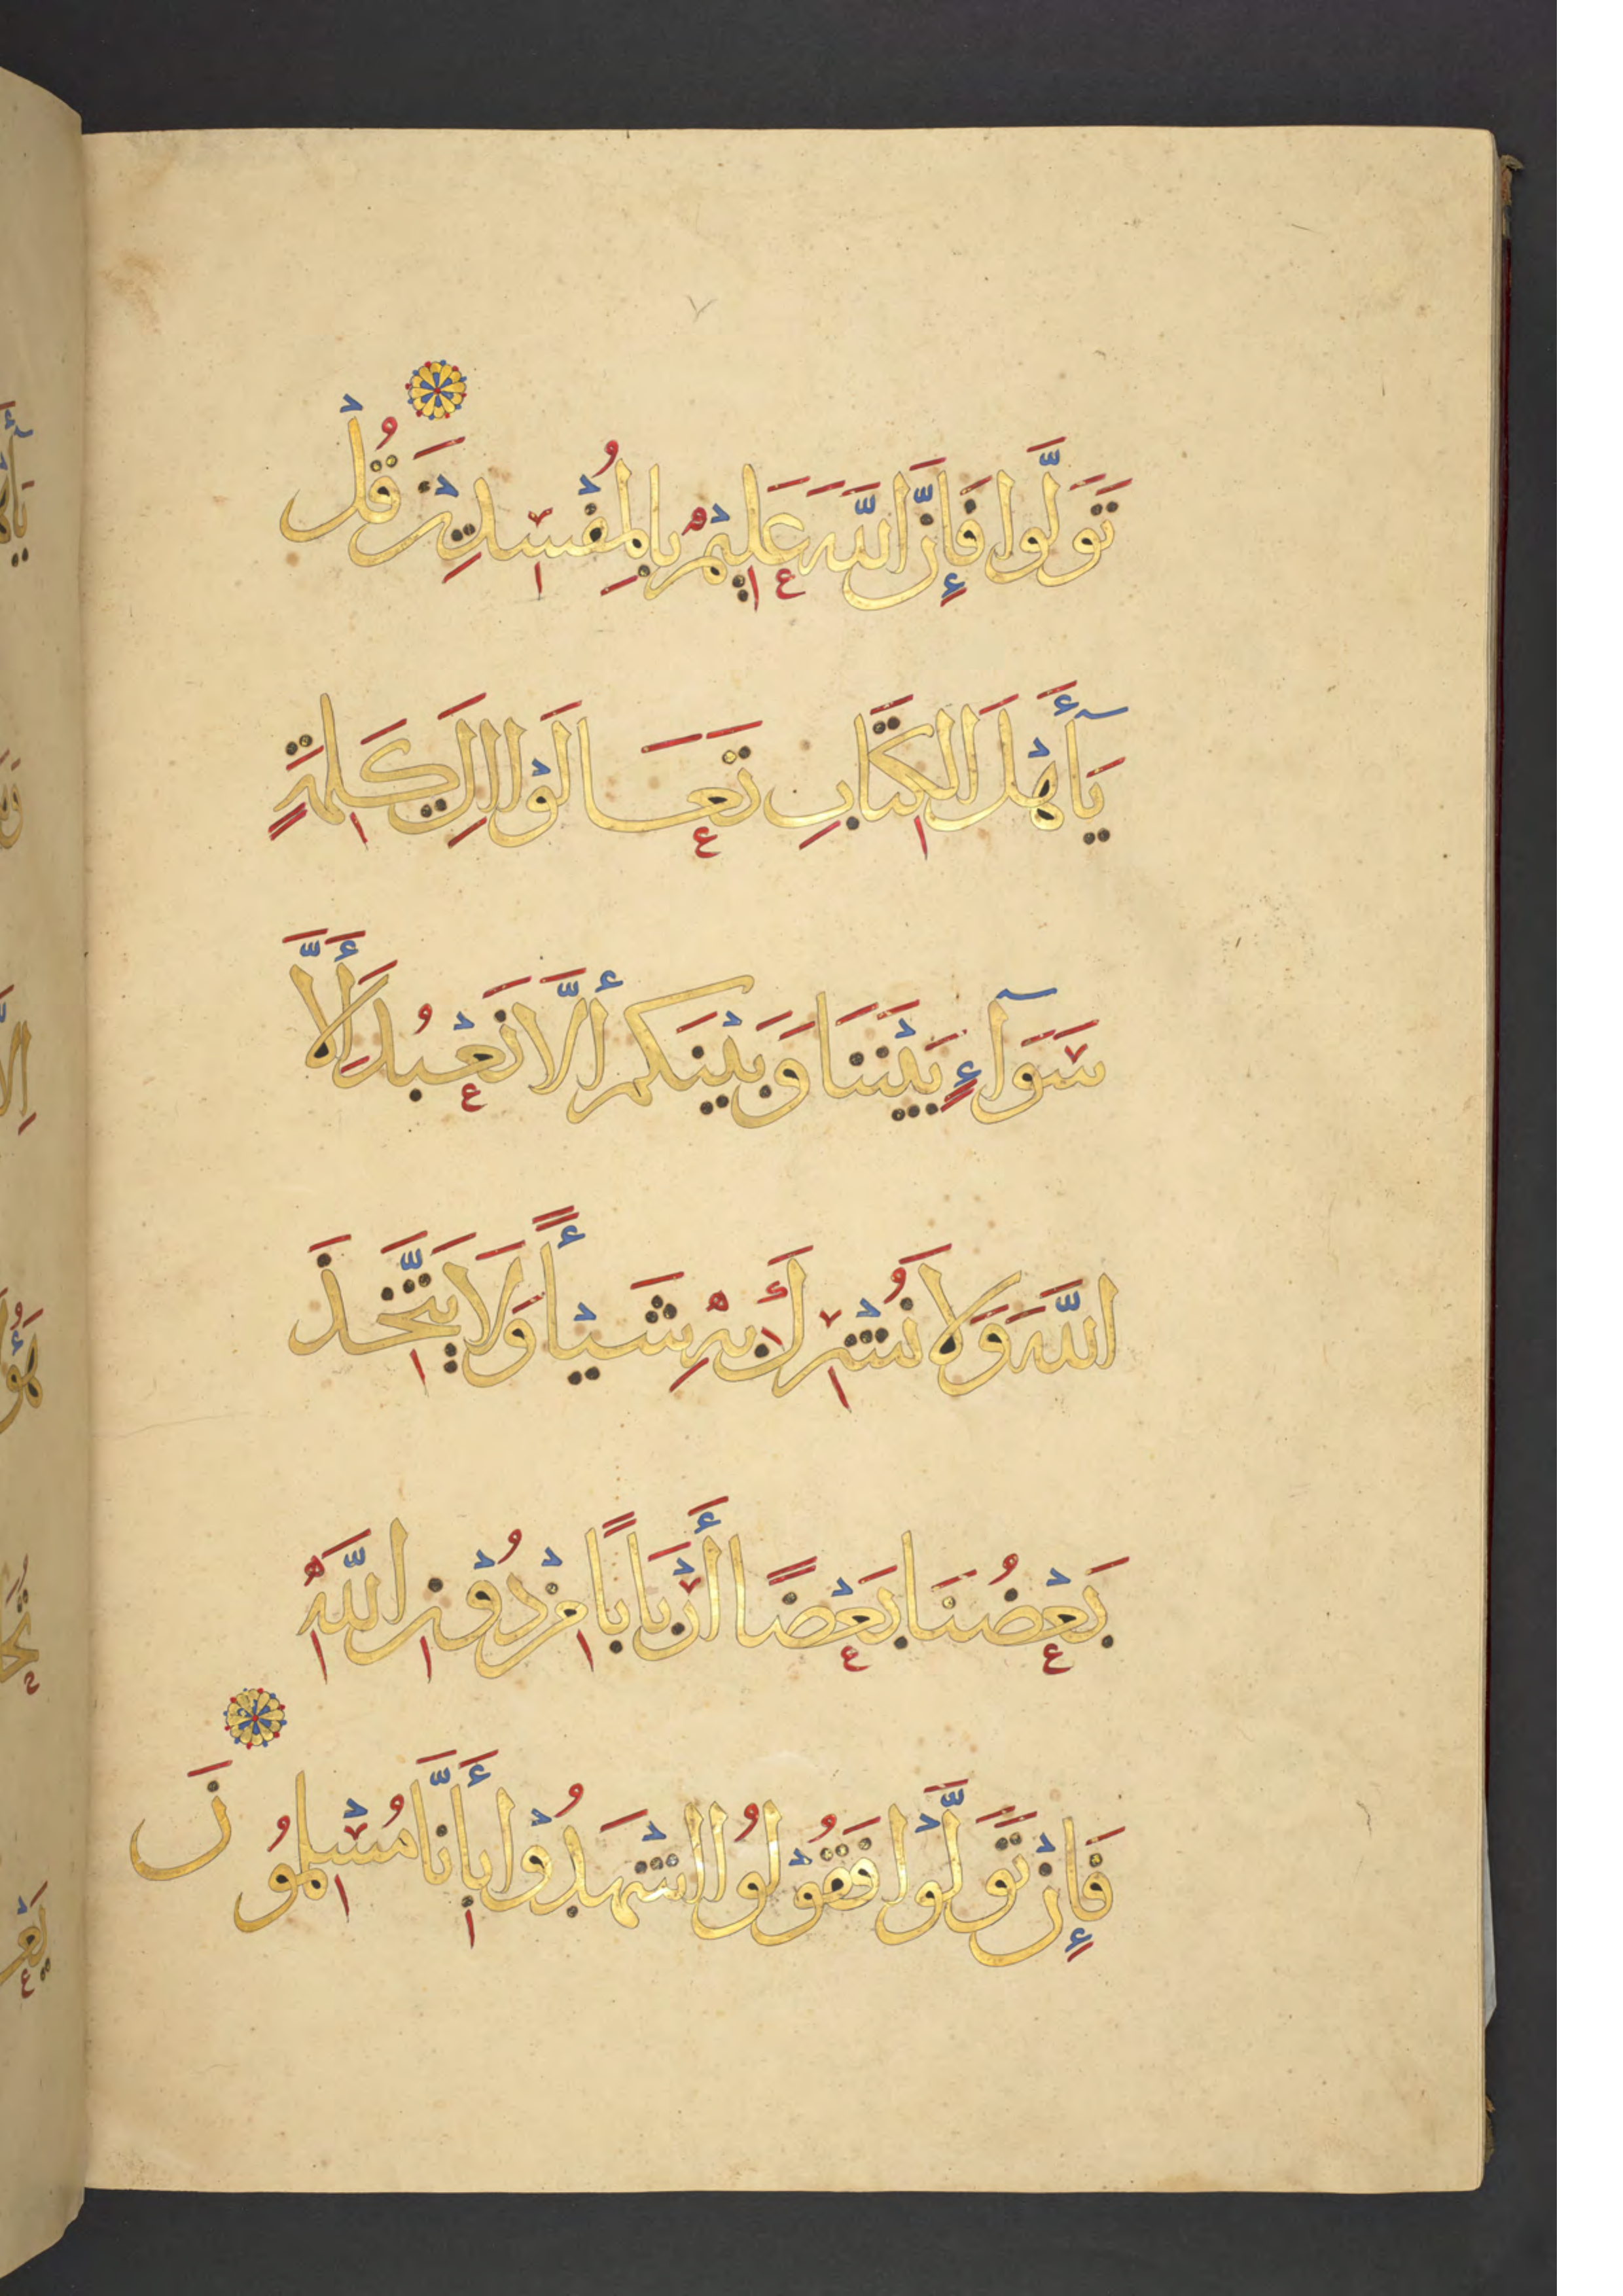 تَوَلَّوا فَإِنَّ اللَّهَ عَلِيْمٌ بِالمُفْسِدِيْنَ قُلْ
يَآ أَهْلَ الكِتَابِ تَعَالَوْا اِلَى كَلِمَةٍ
سَوَآءٍ بَيْنَنَا وَبَيْنَكم أَلَّا نَعْبُدَ إِلَّا
اللَّهَ وَلَا نُشْرِكَ بِهِ شَيْأً وَلَا يَتَّخِذَ
بَعْضُنَا بَعْضًا أَرْبَابًا مِنْ دُوْنِ اللَّهِ
فَإِنْ تَوَلَّوْا فَقُوْلُوا اشْهَدُوْا بِأَنَّا مُسْلِمُونَ